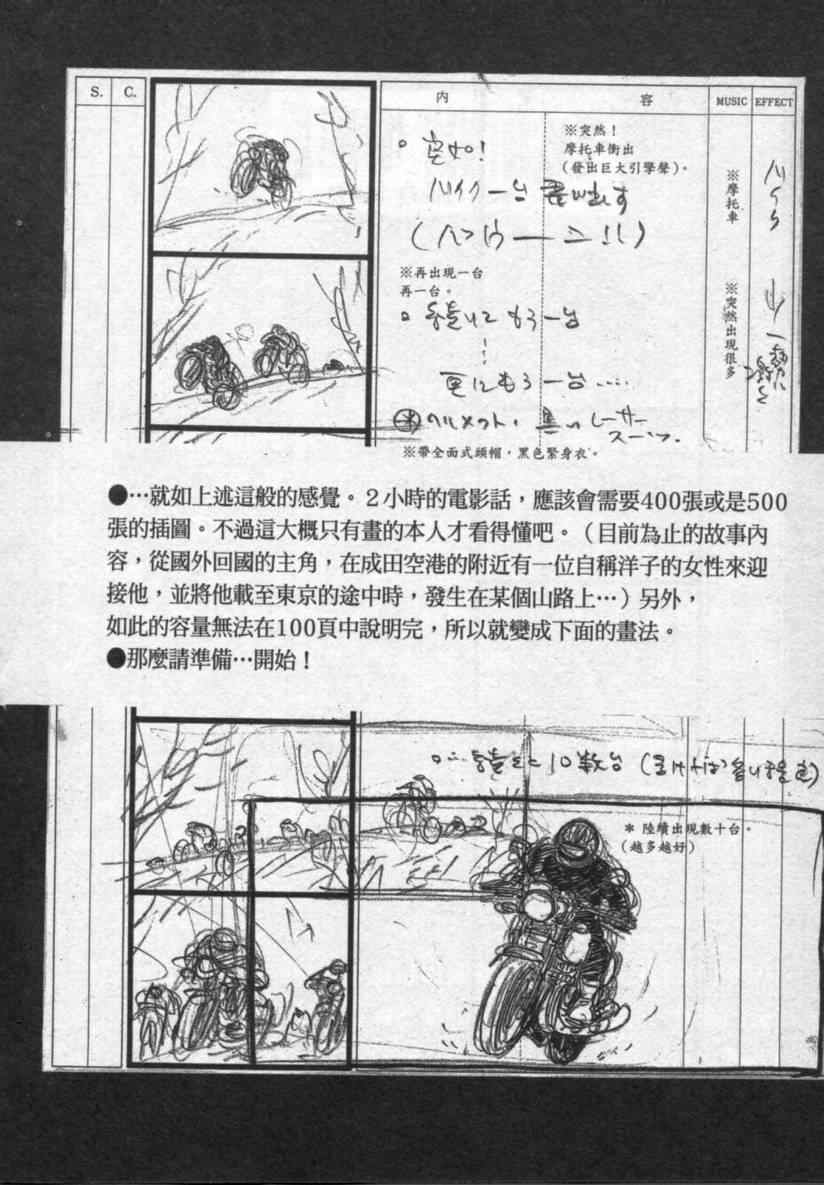 S. C. 內 容 MUSIC EFFECT
※突然！
摩托車衝出
(發出巨大引擎聲)。
突如!
バイク一台 飛び出す
※摩托車
バイク
※再出現一台
再一台。
続いてもう一台
更にもう一台……
※突然出現很多
ヘルメット、黒いレーサースーツ。
※帶全面式頭帽，黑色緊身衣。
●…就如上述這般的感覺。２小時的電影話，應該會需要400張或是500
張的插圖。不過這大概只有畫的本人才看得懂吧。（目前為止的故事內
容，從國外回國的主角，在成田空港的附近有一位自稱洋子的女性來迎
接他，並將他載至東京的途中時，發生在某個山路上…）另外，
如此的容量無法在100頁中說明完，所以就變成下面的畫法。
●那麼請準備…開始！
続々と10数台
* 陸續出現數十台。
(越多越好)